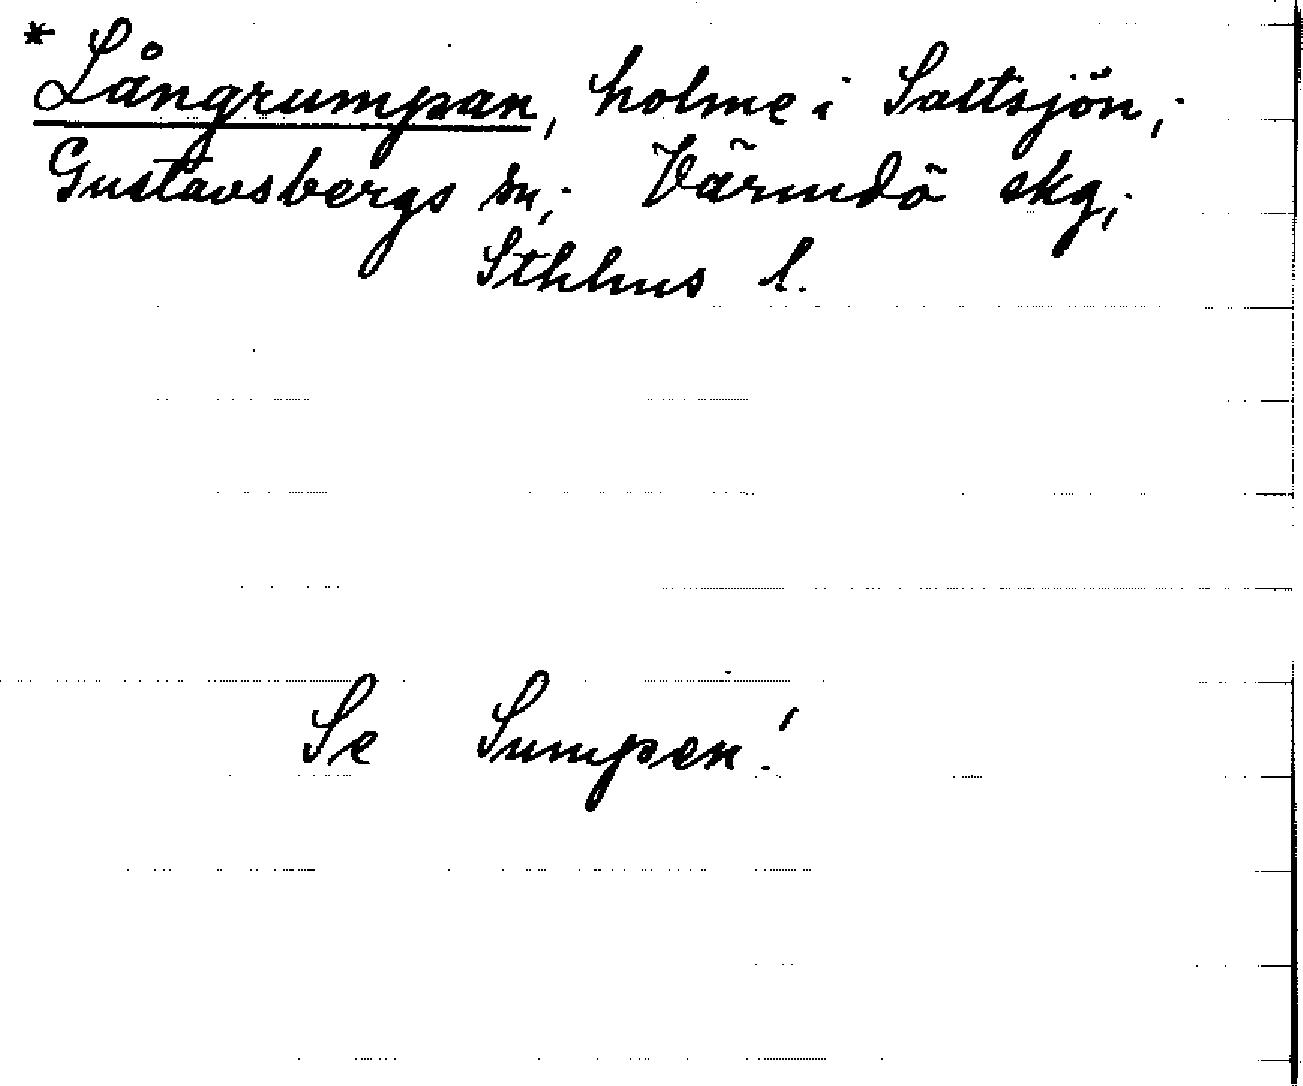 * Långrumpan, holme i Saltsjön,;
Gustavsbergs sn,; Värmdö skg,;
Sthlms l.
Se Sumpen!